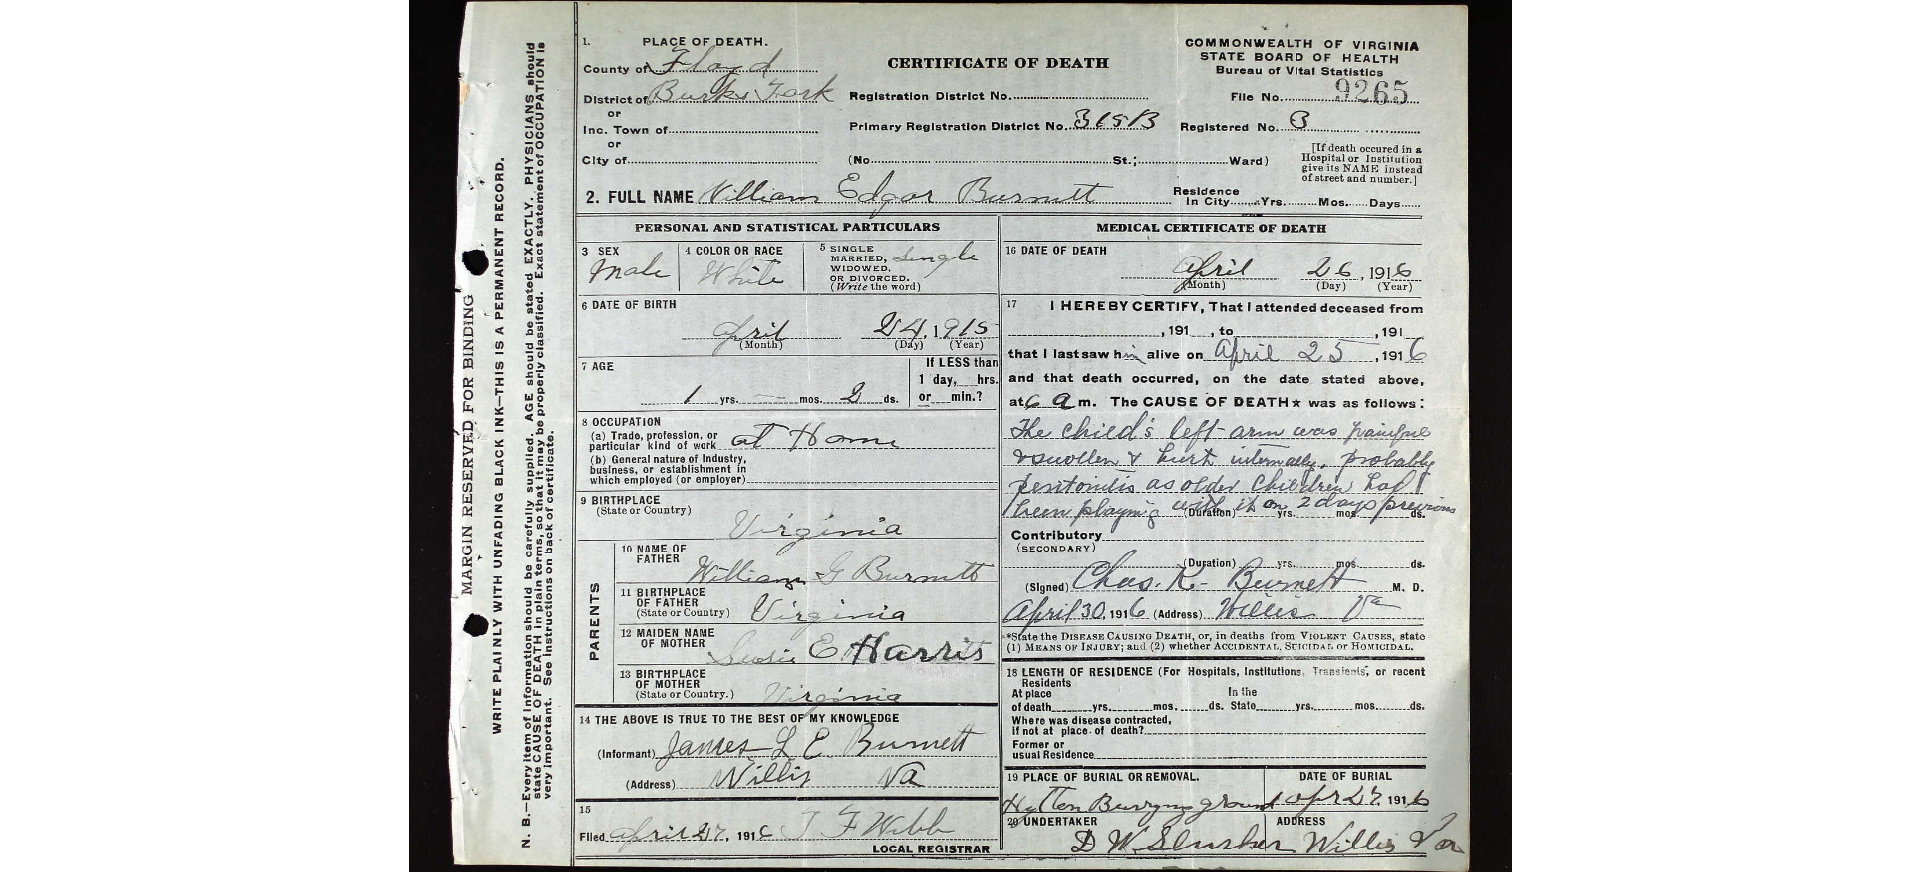 MARGIN RESERVED FOR BINDING
WRITE PLAINLY WITH UNFADING BLACK INK—THIS IS A PERMANENT RECORD.
N. B.—Every item of Information should be carefully supplied. AGE should be stated EXACTLY. PHYSICIANS should
state CAUSE OF DEATH in plain terms, so that it may be properly classified. Exact statement of OCCUPATION is
very important. See instructions on back of certificate.
1. PLACE OF DEATH.
County of Floyd
District of Burks Fork
or
Inc. Town of
or
City of
CERTIFICATE OF DEATH
Registration District No.
Primary Registration District No. 315B
(No. St.; Ward)
COMMONWEALTH OF VIRGINIA
STATE BOARD OF HEALTH
Bureau of Vital Statistics
File No. 9265
Registered No. 3
[If death occured in a
Hospital or Institution
give its NAME instead
of street and number.]
2. FULL NAME William Edgar Burnett
Residence
In City Yrs. Mos. Days
PERSONAL AND STATISTICAL PARTICULARS
3 SEX
Male
4 COLOR OR RACE
White
5 SINGLE
MARRIED,
WIDOWED,
OR DIVORCED.
(Write the word)
Single
6 DATE OF BIRTH
April 24, 1915
(Month) (Day) (Year)
7 AGE
1 yrs. — mos. 2 ds.
If LESS than
1 day, hrs.
or min.?
8 OCCUPATION
(a) Trade, profession, or
particular kind of work at Home
(b) General nature of Industry,
business, or establishment in
which employed (or employer)
9 BIRTHPLACE
(State or Country)
Virginia
PARENTS
10 NAME OF
FATHER
William G Burnett
11 BIRTHPLACE
OF FATHER
(State or Country) Virginia
12 MAIDEN NAME
OF MOTHER
Susie E. Harris
13 BIRTHPLACE
OF MOTHER
(State or Country.) Virginia
14 THE ABOVE IS TRUE TO THE BEST OF MY KNOWLEDGE
(Informant) James L E Burnett
(Address) Willis Va
15
Filed April 27, 1916 T F Webb
LOCAL REGISTRAR
MEDICAL CERTIFICATE OF DEATH
16 DATE OF DEATH
April 26, 1916
(Month) (Day) (Year)
17 I HEREBY CERTIFY, That I attended deceased from
, 191 , to , 191
that I last saw him alive on April 25, 1916
and that death occurred, on the date stated above,
at 6 a m. The CAUSE OF DEATH★ was as follows:
The child's left arm was painful
& swollen & hurt internally, probably
peritonitis as older Children had
been playing with it on 2 days previous
(Duration) yrs. mos. ds.
Contributory
(SECONDARY)
(Duration) yrs. mos. ds.
(Signed) Chas. K. Burnett M. D.
April 30, 1916 (Address) Willis Va
*State the DISEASE CAUSING DEATH, or, in deaths from VIOLENT CAUSES, state
(1) MEANS OF INJURY; and (2) whether ACCIDENTAL, SUICIDAL or HOMICIDAL.
18 LENGTH OF RESIDENCE (For Hospitals, Institutions, Transients, or recent
Residents
At place
of death yrs. mos. ds.
In the
State yrs. mos. ds.
Where was disease contracted,
If not at place of death?
Former or
usual Residence
19 PLACE OF BURIAL OR REMOVAL.
Hylton Burying ground
DATE OF BURIAL
Apr 27, 1916
20 UNDERTAKER
D W Slusher
ADDRESS
Willis Va